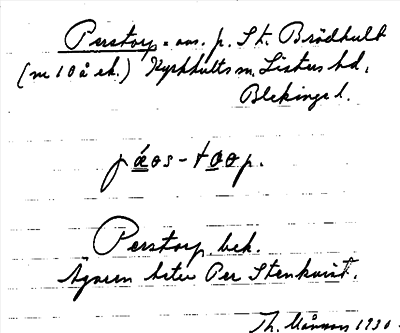 Perstorp. ns. p. St. Brödhult
(nr 10 å ek.) Kyrkhults sn. Listers hd.
Blekinge l.
páos-toop.
Perstorp. bek.
Ägaren heter Per Stenkvist.
Th. 1930.